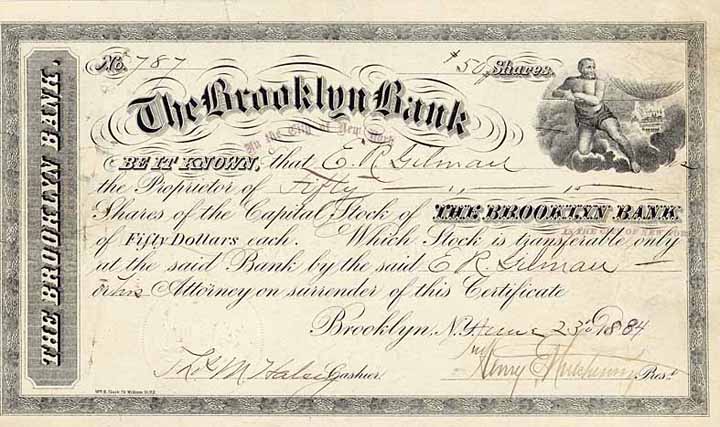 THE BROOKLYN BANK.
No. 787 $50 Shares
The Brooklyn Bank
In the City of New York
BE IT KNOWN, that E. R. Gilman
the Proprietor of Fifty
Shares of the Capital Stock of THE BROOKLYN BANK
IN THE CITY OF NEW YORK
of Fifty Dollars each. Which Stock is transferable only
at the said Bank by the said E. R. Gilman
or his Attorney on surrender of this Certificate
Brooklyn, N.Y. June 23d 1884
Cashier. Henry Pres.t